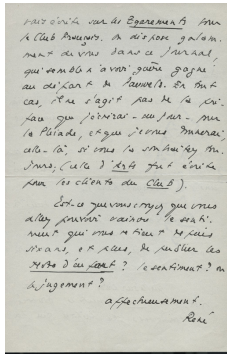 fait écrite sur les Egarements pour
le Club Français. On dispose galam-
ment de vous dans ce journal,
qui semble n'avoir guère gagné
au départ de Pauwels. En tout
cas, il ne s'agit pas de la pré-
face que j'écrirai - un jour - pour
la Pléiade, et que je vous donnerai
celle-là, si vous le souhaitez tou-
jours. (celle d'Arts fut écrite
pour les clients du Club).
Est-ce que vous croyez que vous
allez pouvoir vaincre le senti-
ment qui vous retient depuis
six ans, et plus, de publier les
? le sentiment? ou
le jugement?
affectueusement.
René